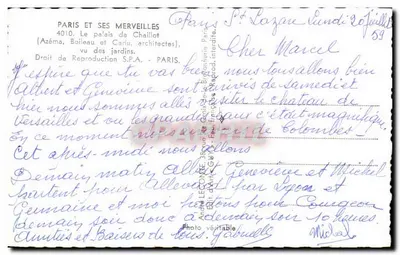 PARIS ET SES MERVEILLES
4010. Le palais de Chaillot
(Azéma, Boileau et Carlu, architectes),
vu des jardins.
Droit de Reproduction S.P.A. - PARIS.
Paris St Lazare Lundi 20 Juillet
59
Cher Marcel
J'espère que tu vas bien nous tous allons bien
Albert et Geneviève sont arrivés de samedi et
hier nous sommes allés visiter le château de
Versailles et vu les grandes eaux c'était magnifique
En ce moment nous de Colombes
Cet après-midi nous allons
Demain matin Geneviève et Michel
partent pour Allevard par Lyon et
Germaine et moi partons pour Courgeon
demain soir donc à demain soir 10 heures
Amitiés et Baisers de tous. Gabrielle
Michel
Photo véritable